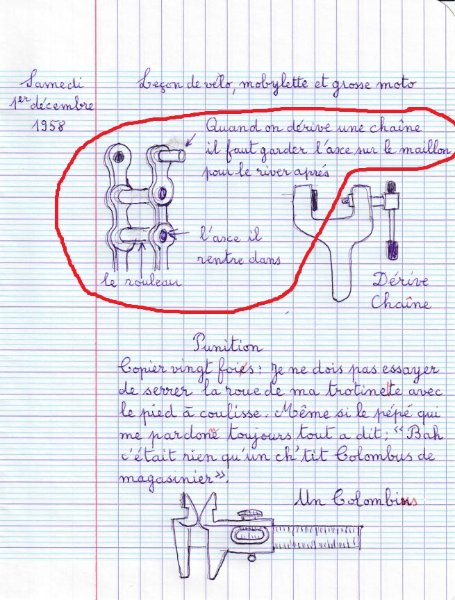 Samedi
1er décembre
1958
Leçon de vélo, mobylette et grosse moto
Quand on dérive une chaîne
il faut garder l'axce sur le maillon
pour le river aprés
l'axce il
rentre dans
le rouleau
Dérive
Chaîne
Punition
Copier vingt foies : Je ne dois pas essayer
de serrer la roue de ma trotinete avec
le pied à coulisse. Même si le pépé qui
me pardone toujours tout a dit : "Bah
c'était rien qu'un ch'tit Colombus de
magasinier".
Un Colombus